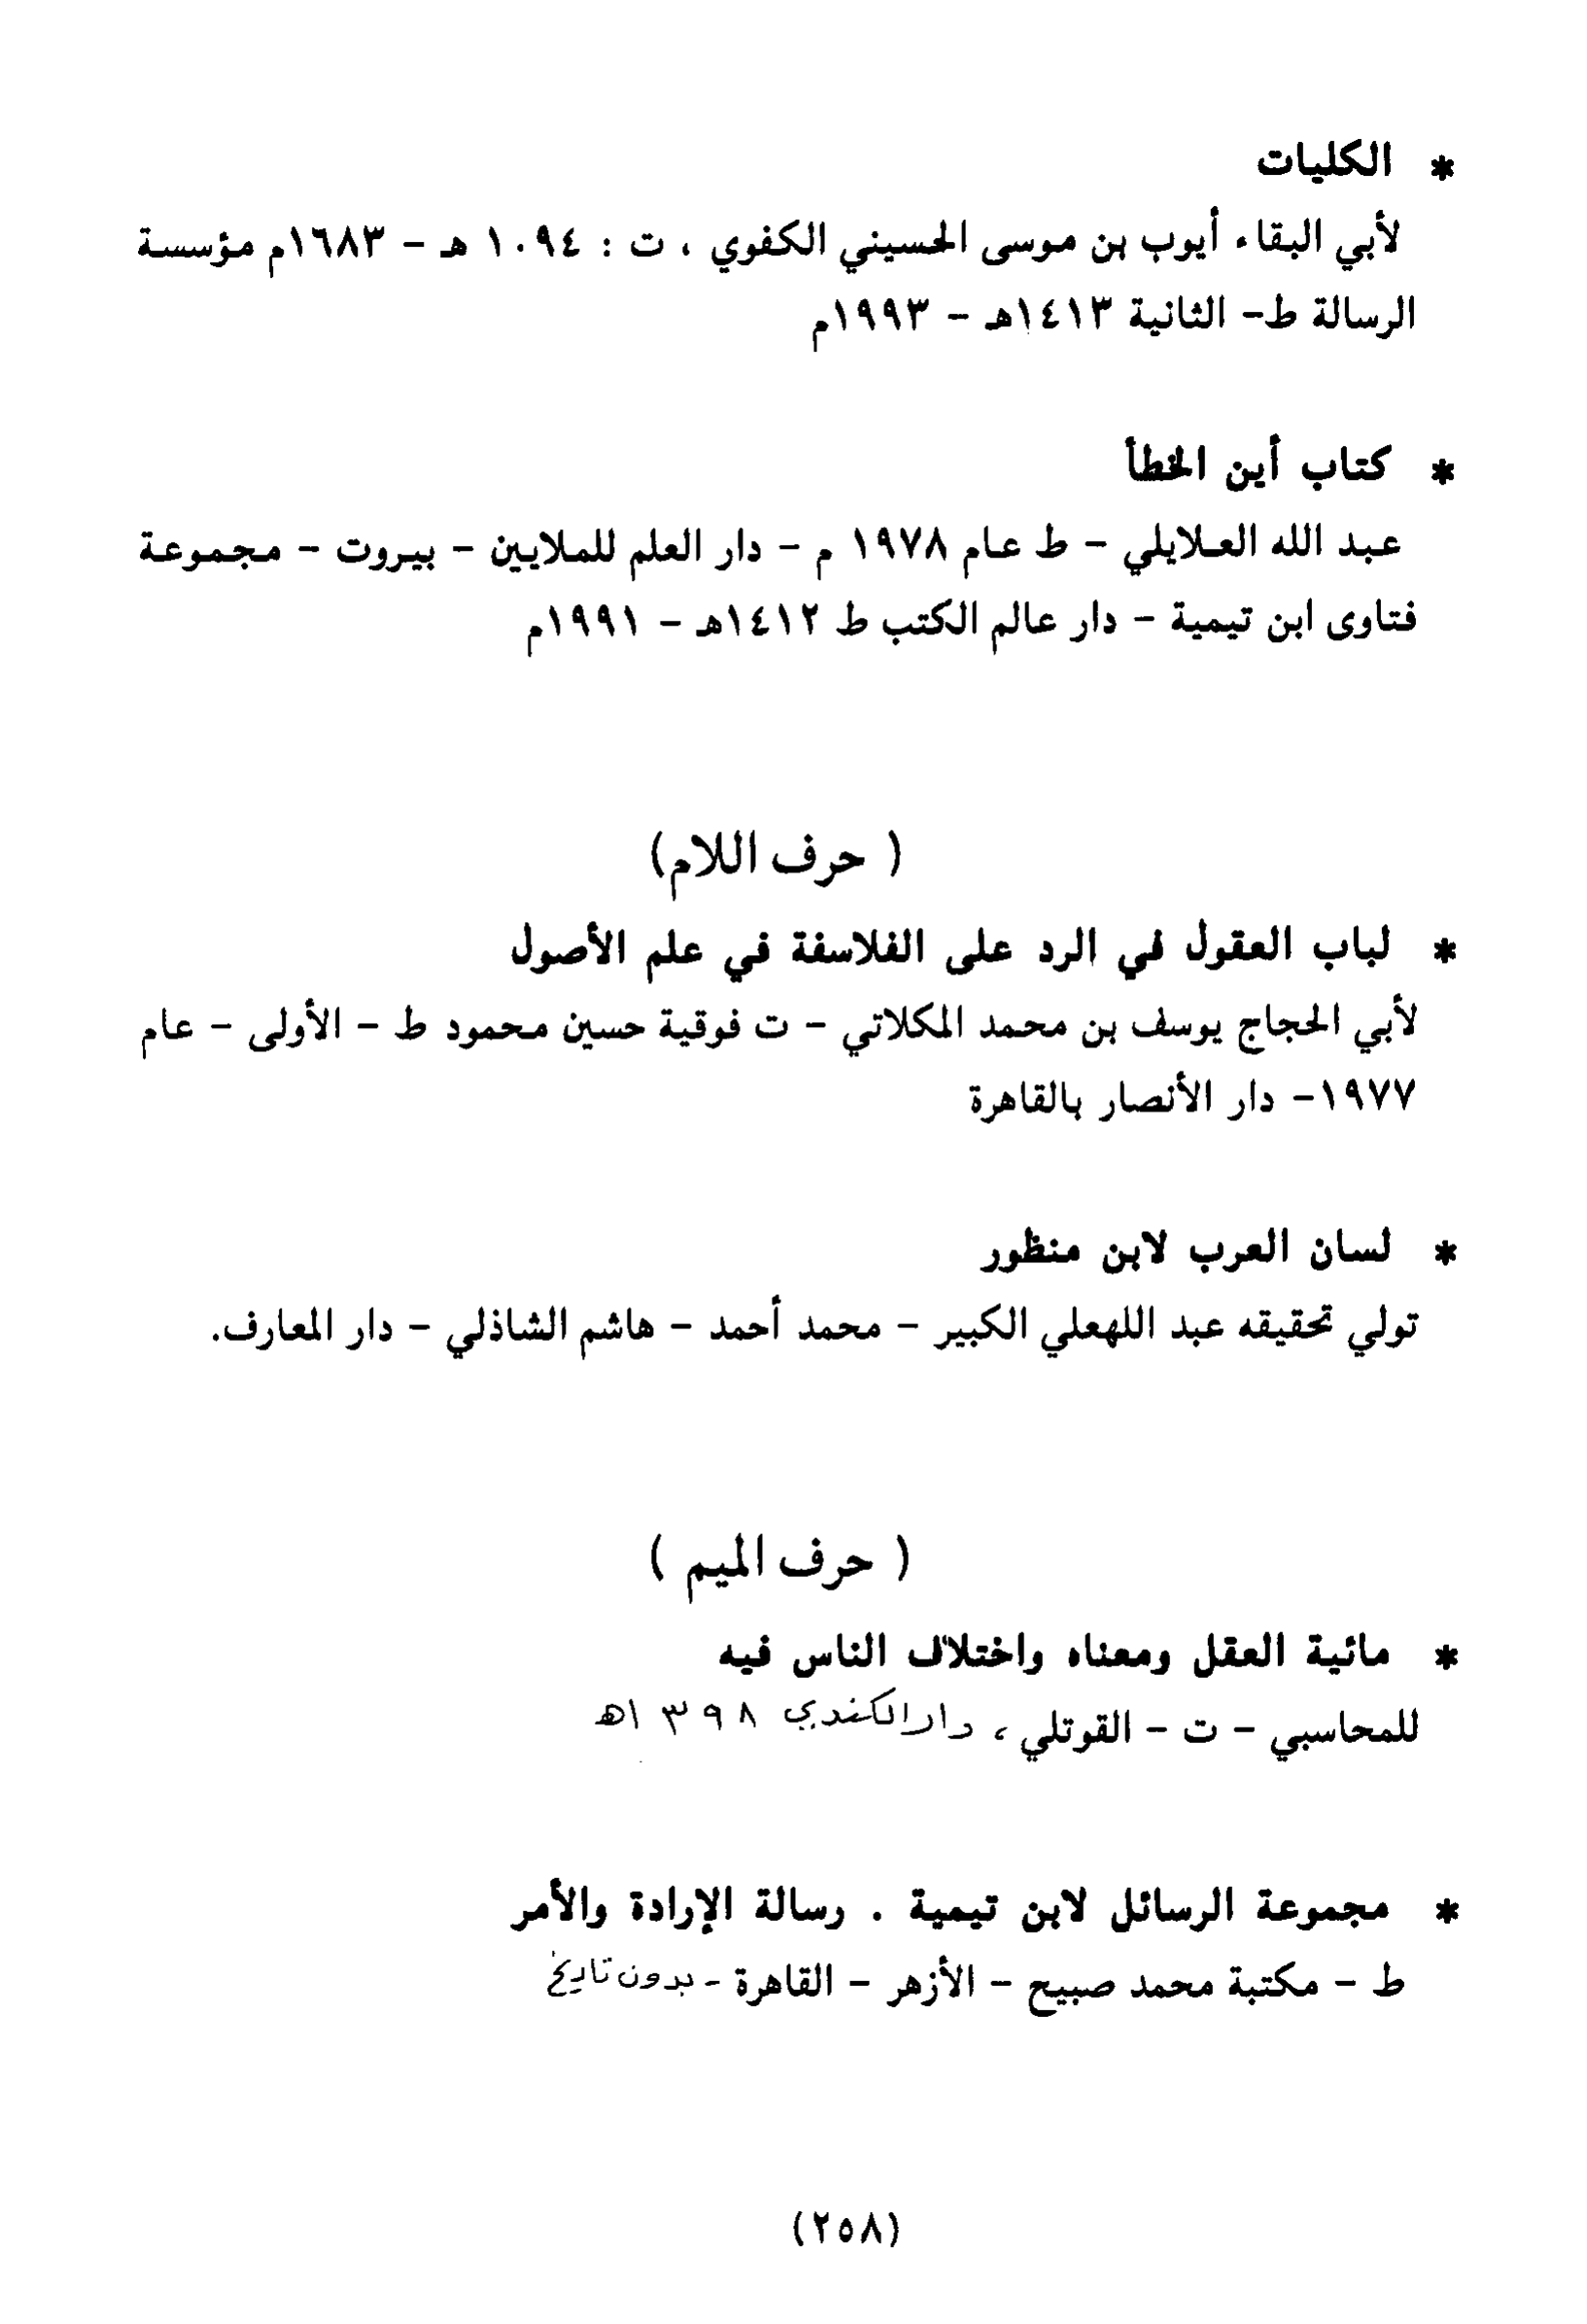 * الكليات
لأبي البقاء أيوب بن موسى الحسيني الكفوي ، ت : ١٠٩٤ هـ - ١٦٨٣م مؤسسة
الرسالة ط- الثانية ١٤١٣هـ - ١٩٩٣م
* كتاب أين الخطأ
عبد الله العلايلي - ط عام ١٩٧٨ م - دار العلم للملايين - بيروت - مجموعة
فتاوى ابن تيمية - دار عالم الكتب ط ١٤١٢هـ - ١٩٩١م
( حرف اللام)
* لباب العقول في الرد على الفلاسفة في علم الأصول
لأبي الحجاج يوسف بن محمد المكلاتي - ت فوقية حسين محمود ط - الأولى - عام
١٩٧٧- دار الأنصار بالقاهرة
* لسان العرب لابن منظور
تولي تحقيقه عبد اللهعلي الكبير - محمد أحمد - هاشم الشاذلي - دار المعارف.
( حرف الميم )
* مائية العقل ومعناه واختلاف الناس فيه
للمحاسبي - ت - القوتلي ، دار الكندي ١٣٩٨هـ
* مجموعة الرسائل لابن تيمية . رسالة الإرادة والأمر
ط - مكتبة محمد صبيح - الأزهر - القاهرة - بدون تاريخ
(٢٥٨)